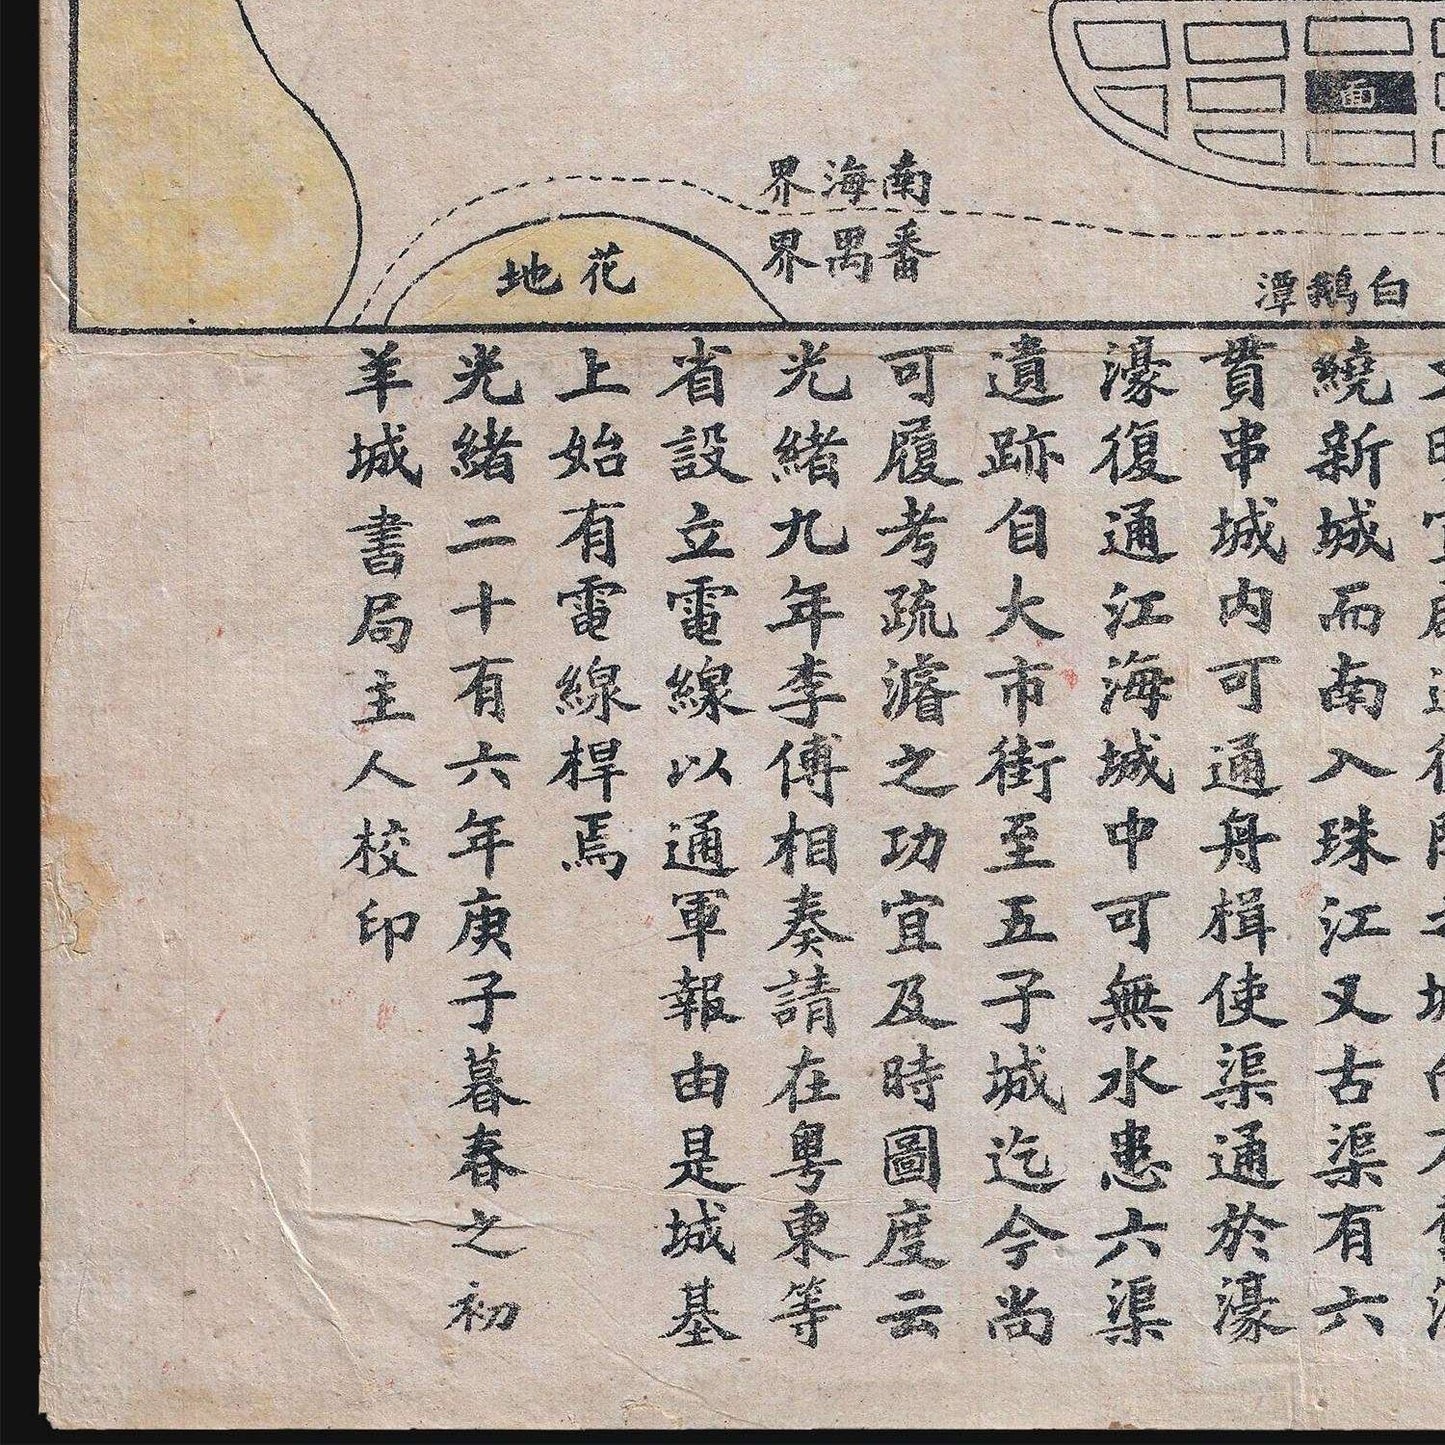 面
南海界
番禺界
花地
白鵝潭
繞新城而南入珠江又古渠有六
貫串城内可通舟楫使渠通於濠
濠復通江海城中可無水患六渠
遺跡自大市街至五子城迄今尚
可履考疏濬之功宜及時圖度云
光緒九年李傅相奏請在粵東等
省設立電線以通軍報由是城基
上始有電線桿焉
光緒二十有六年庚子暮春之初
羊城書局主人校印